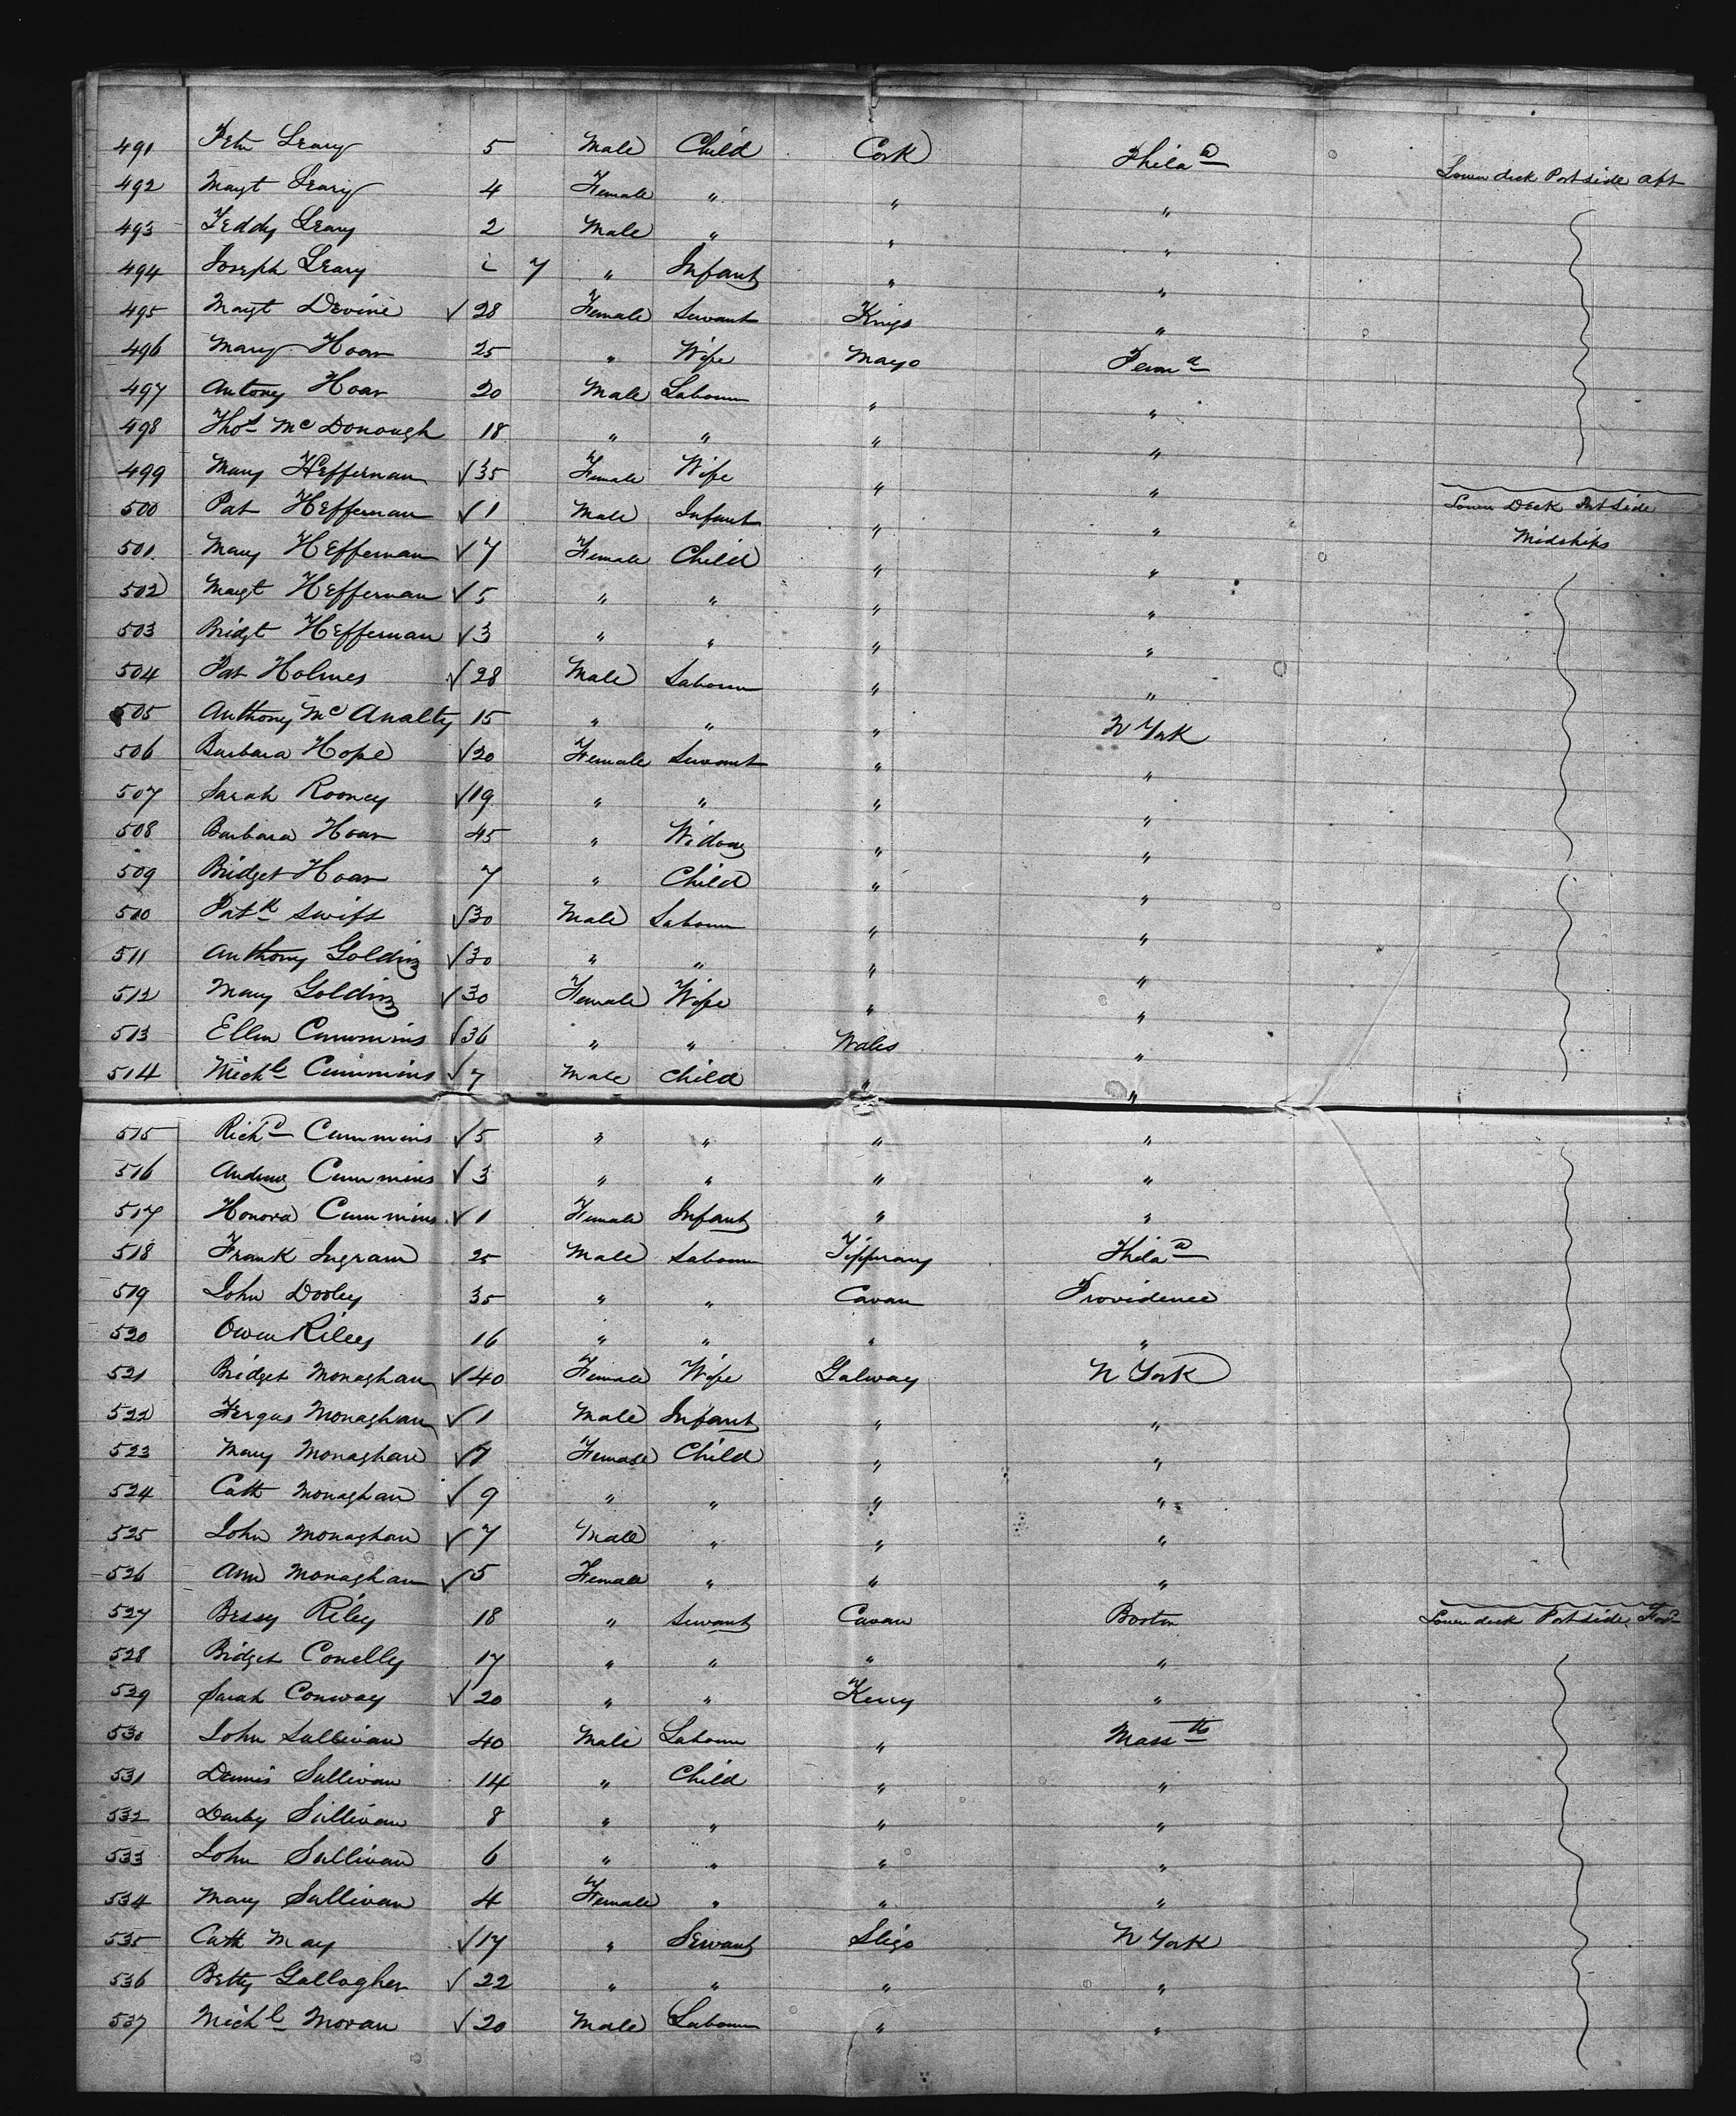 491 Petr Leary 5 Male Child Cork Phila a Lower deck Port side aft
492 Margt Leary 4 Female " " "
493 Teddy Leary 2 Male " " "
494 Joseph Leary 7 " Infant " "
495 Margt Devine √ 28 Female Servant Kings "
496 Mary Hoar 25 " Wife Mayo Penn a
497 Antony Hoar 20 Male Labourer " "
498 Thos McDonough 18 " " " "
499 Mary Heffernan √ 35 Female Wife " "
500 Pat Heffernan √ 1 Male Infant " " Lower Deck Port side
501 Mary Heffernan √ 7 Female Child " " Midships
502 Margt Heffernan √ 5 " " " "
503 Bridgt Heffernan √ 3 " " " "
504 Pat Holmes √ 28 Male Labourer " "
505 Anthony McAnalty 15 " " " N York
506 Barbara Hope √ 20 Female Servant " "
507 Sarah Rooney √ 19 " " " "
508 Barbara Hoar 45 " Widow " "
509 Bridget Hoar 7 " Child " "
510 Patk Swift √ 30 Male Labourer " "
511 Anthony Golding √ 30 " " " "
512 Mary Golding √ 30 Female Wife " "
513 Ellen Cummins √ 36 " " Wales "
514 Michl Cummins √ 7 Male Child " "
515 Richd Cummins √ 5 " " " "
516 Andrew Cummins √ 3 " " " "
517 Honora Cummins √ 1 Female Infant " "
518 Frank Ingram 25 Male Labourer Tipperary Phila a
519 John Dooley 35 " " Cavan Providence
520 Owen Riley 16 " " " "
521 Bridget Monaghan √ 40 Female Wife Galway N York
522 Fergus Monaghan √ 1 Male Infant " "
523 Mary Monaghan √ Female Child " "
524 Cath Monaghan √ 9 " " " "
525 John Monaghan √ 7 Male " " "
526 Ann Monaghan √ 5 Female " " "
527 Bessy Riley 18 " Servant Cavan Boston Lower deck Port side Ford
528 Bridget Conelly 17 " " " "
529 Sarah Conway √ 20 " " Kerry "
530 John Sullivan 40 Male Labourer " Mass ts
531 Dennis Sullivan 14 " Child " "
532 Darby Sullivan 8 " " " "
533 John Sullivan 6 " " " "
534 Mary Sullivan 4 Female " " "
535 Cath May √ 17 " Servant Sligo N York
536 Betty Gallagher √ 22 " " " "
537 Michl Moran √ 20 Male Labourer " "